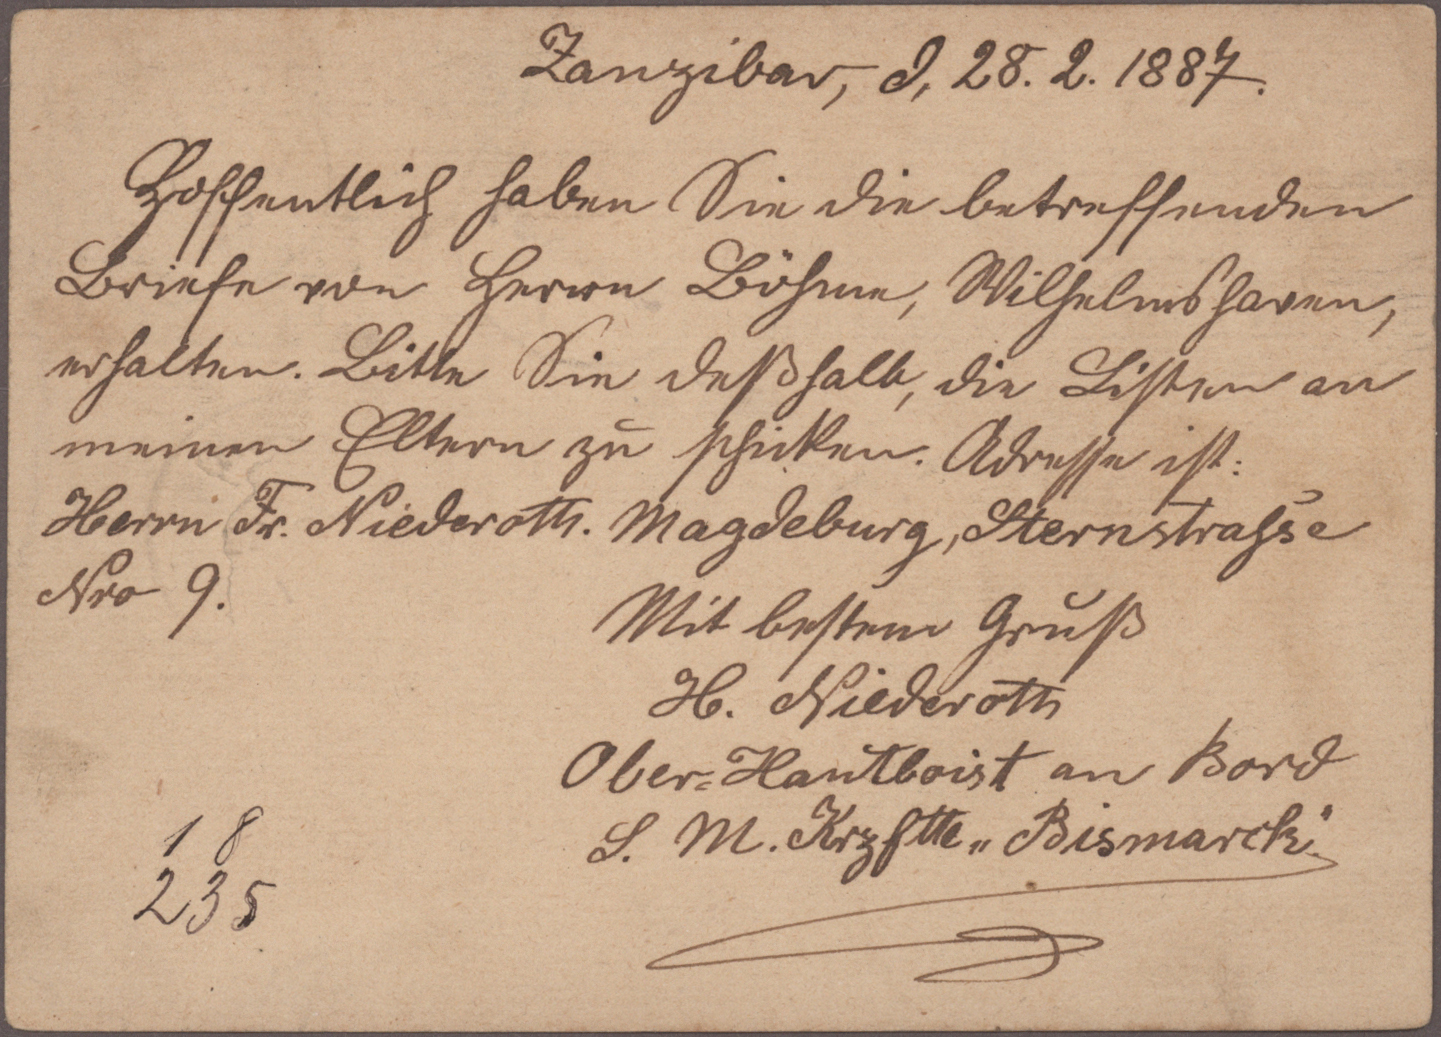 Zanzibar, d, 28. 2. 1887.
Hoffentlich haben Sie die betreffenden
Briefe von Herrn Böhme, Wilhelmshaven,
erhalten. Bitte Sie deßhalb, die Listen an
meinen Eltern zu schicken. Adresse ist:
Herrn Fr. Niederoth. Magdeburg, Sternstraße
Nro 9.
Mit bestem Gruß
H. Niederoth
Ober=Hautboist an Bord
S. M. Krzftte „Bismarck“
1 8
2 3 5